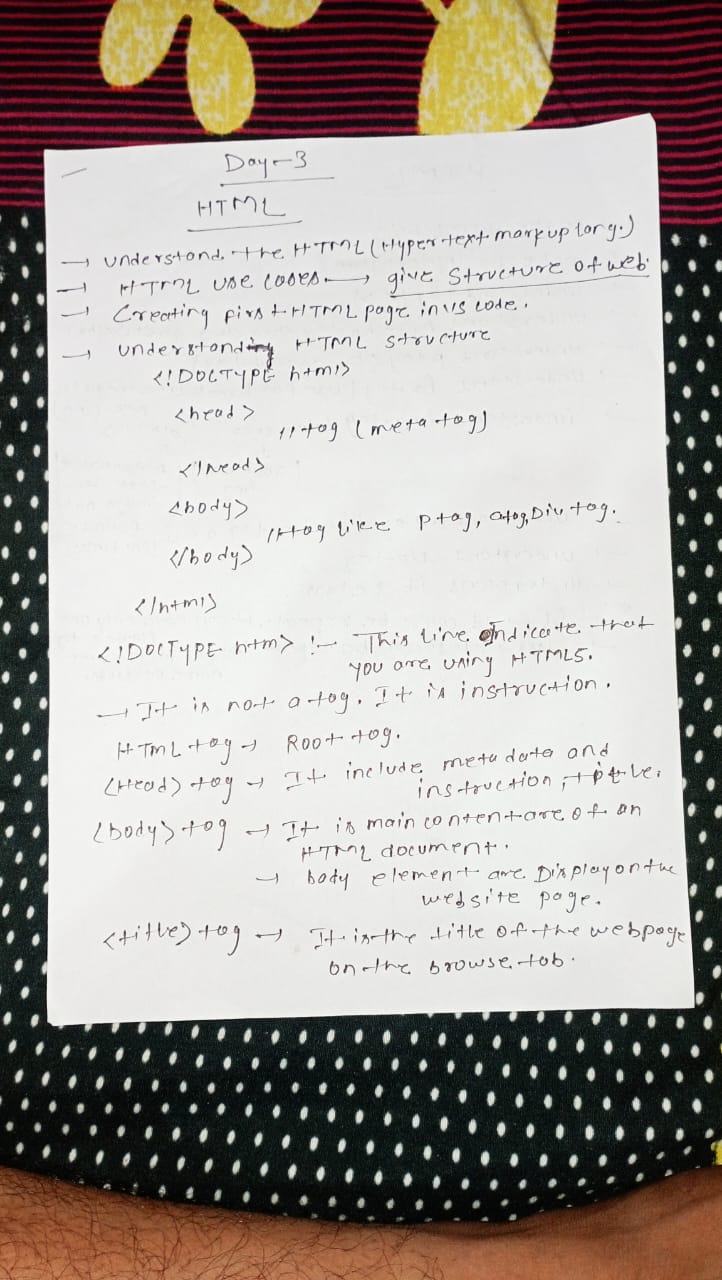 Day-3
HTML
→ understand the HTML (Hyper text markup lang.)
→ HTML use cases → give Structure of web.
→ Creating first HTML page in vs code.
→ understanding HTML structure
<!DOCTYPE html>
<head>
// tag (meta tag)
</head>
<body>
// tag like p tag, a tag, Div tag.
</body>
</html>
<!DOCTYPE htm> :- This line indicate that
you are using HTML5.
→ It is not a tag. It is instruction.
HTML tag → Root tag.
<Head> tag → It include meta data and
instruction,
<body> tag → It is main content are of an
HTML document.
→ body element are Display on the
website page.
<title> tag → It is the title of the webpage
on the browse tab.